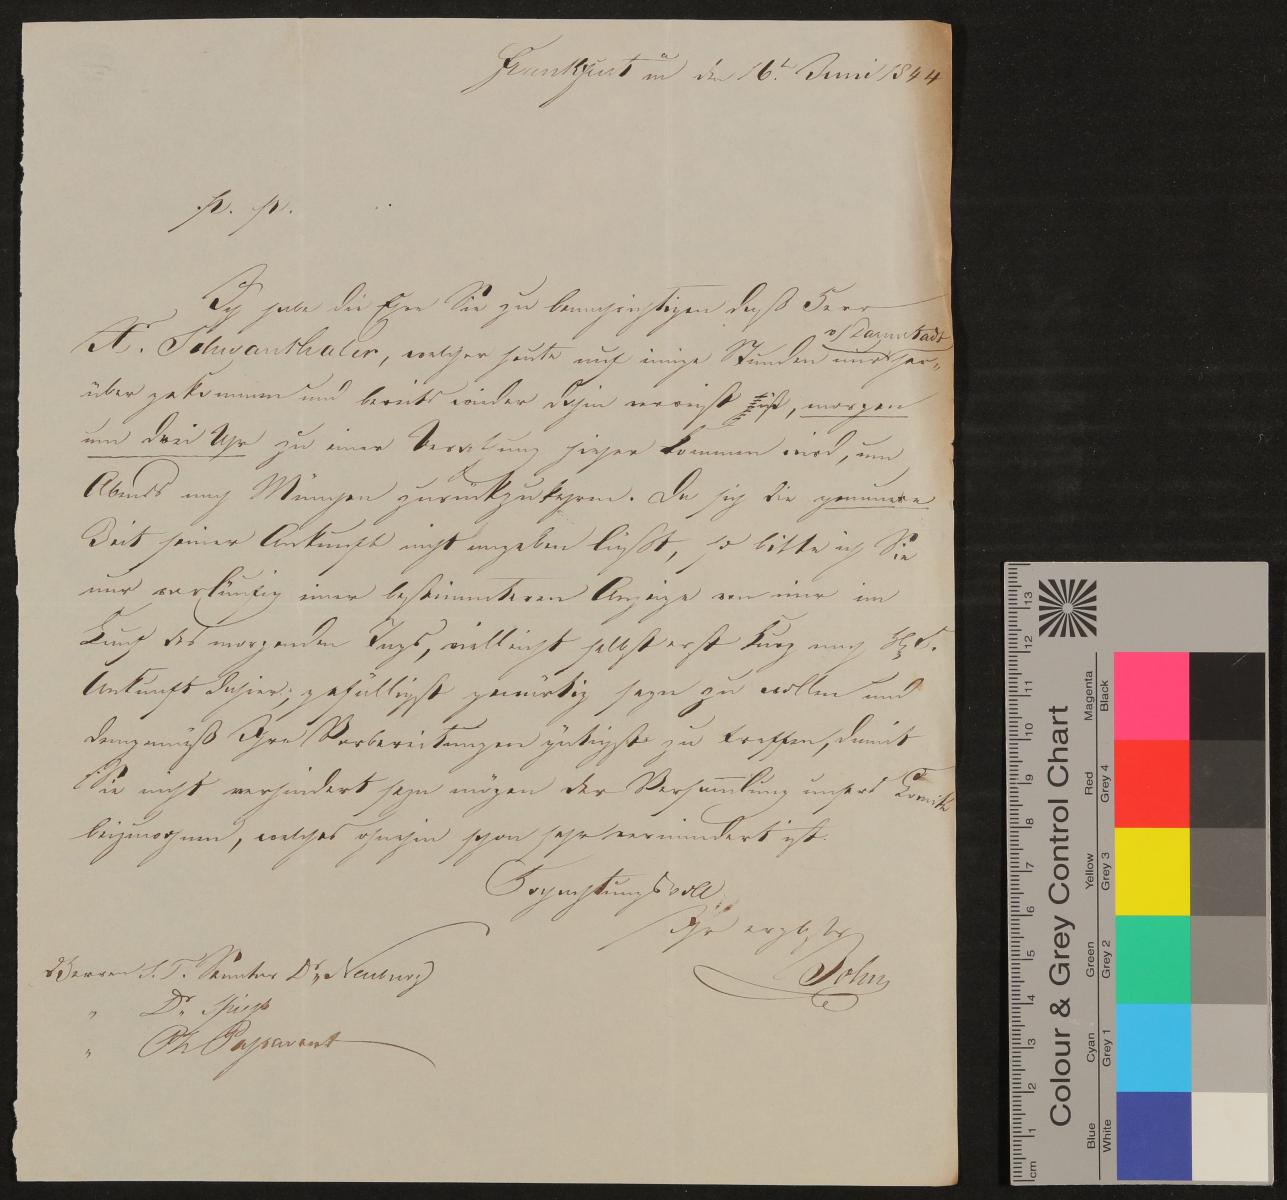 Frankfurt a/m den 16t. Juni 1844
p. p.
Ich habe die Ehre Sie zu benachrichtigen daß Herr
X. Schwanthaler, welcher heute auf einige Stunden v/ Darmstadt nur her=
über gekommen und bereits wieder dahin verreist ist, morgen
um drei Uhr zu einer Berathung hieher kommen wird, um
Abends nach München zurückzukehren. Da sich die genauere
Zeit seiner Ankunft nicht angeben läßt, so bitte ich Sie
nur vorläufig einer bestimmteren Anzeige von mir im
Lauf des morgenden Tags, vielleicht selbst erst kurz nach
Ankunft dahier, gefälligst gewärtig seyn zu wollen und
demgemäß Ihre Vorbereitungen gütigst zu treffen, damit
Sie nicht verhindert seyn mögen der Versammlung unseres Comité
beizuwohnen, welches ohnehin schon sehr vermindert ist.
Hochachtungsvoll
Ihr ergbster
Herren S. T. Senator Dr. Neuburg
" Dr. Spieß
" Ph. Passavant
Colour & Grey Control Chart
Blue Cyan Green Yellow Red Magenta
White Grey 1 Grey 2 Grey 3 Grey 4 Black
cm 1 2 3 4 5 6 7 8 9 10 11 12 13